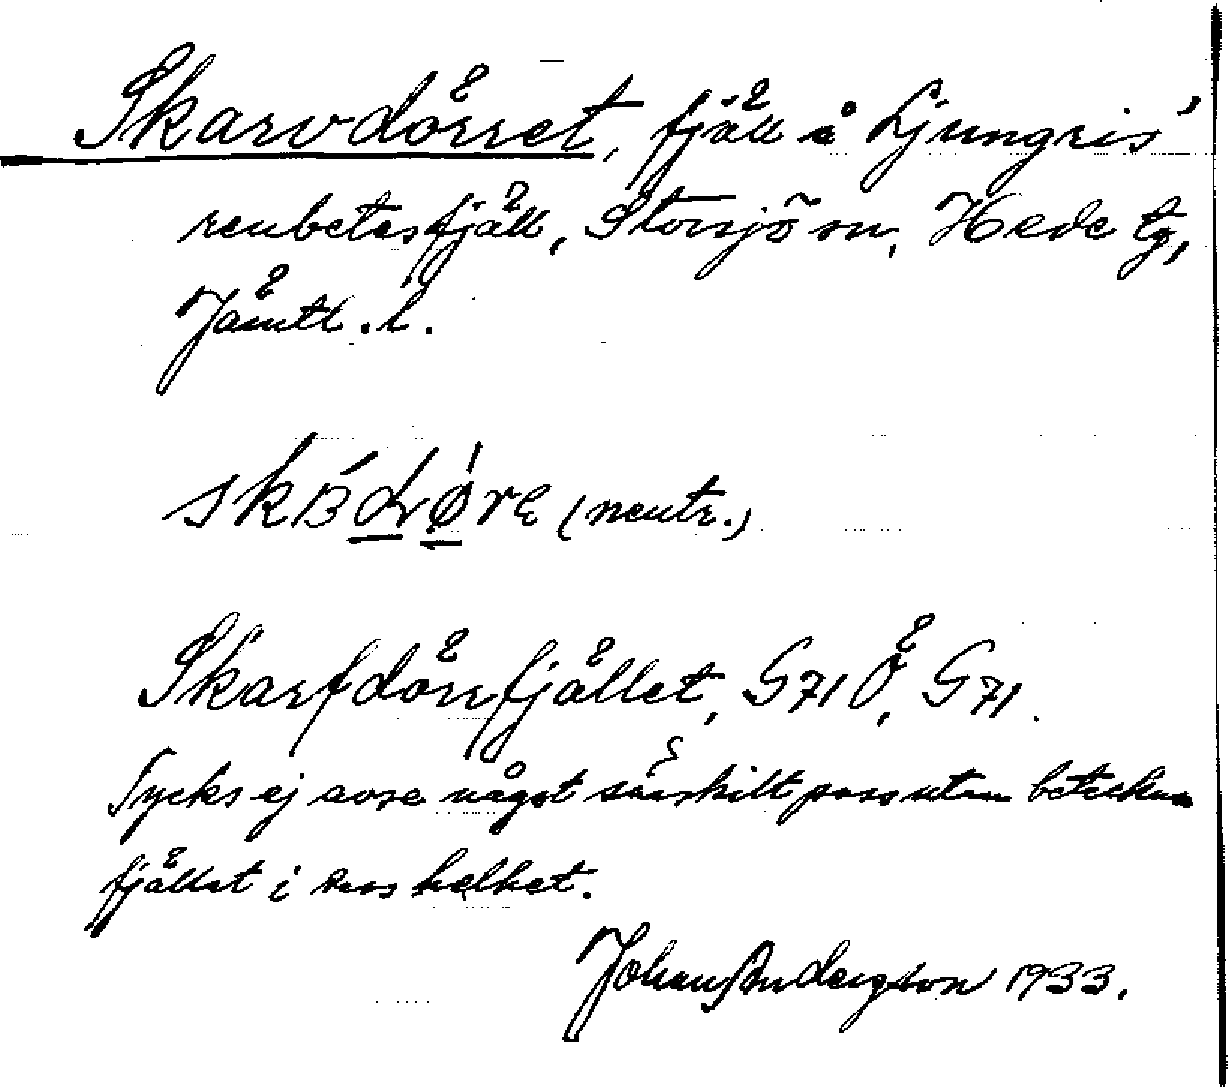 Skarvdörret, fjäll å Ljungris'
renbetesfjäll, Storsjö sn, Hede tg,
Jämtl. l.
(neutr.)
Skarfdörrfjället, G71Ö, G71.
Tycks ej avse något särskilt pass utan betecknar
fjället i dess helhet.
Johan Andersson 1933.